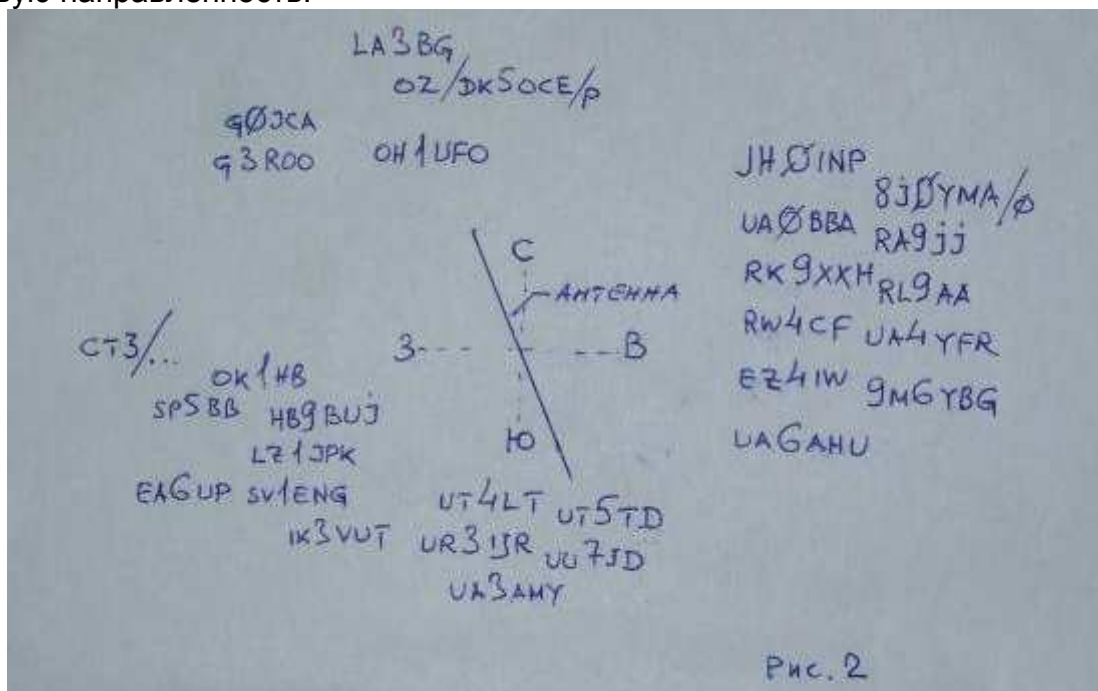 вую направленность.
LA3BG
OZ/DK5OCE/P
GØJCA
G3ROO
OH1UFO
JHØINP
8jØYMA/Ø
UAØBBA
RA9jj
RK9XXH
RL9AA
RW4CF
UA4YFR
EZ4IW
9M6YBG
UA6AHU
С
АНТЕННА
З
В
Ю
CT3/...
OK1HB
SP5BB
HB9BUJ
LZ1JPK
EA6UP
SV1ENG
IK3VUT
UT4LT
UT5TD
UR3IJR
UU7JD
UA3AMY
Рис. 2